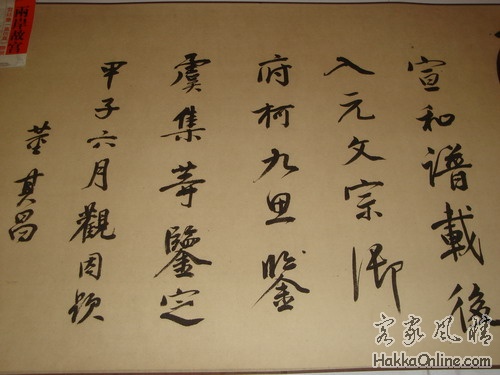 宣和譜載後
入元文宗御
府柯九思鑒
虞集等鑒定
甲子六月觀因題
董其昌
兩岸故宮
客家風情
HakkaOnline.com